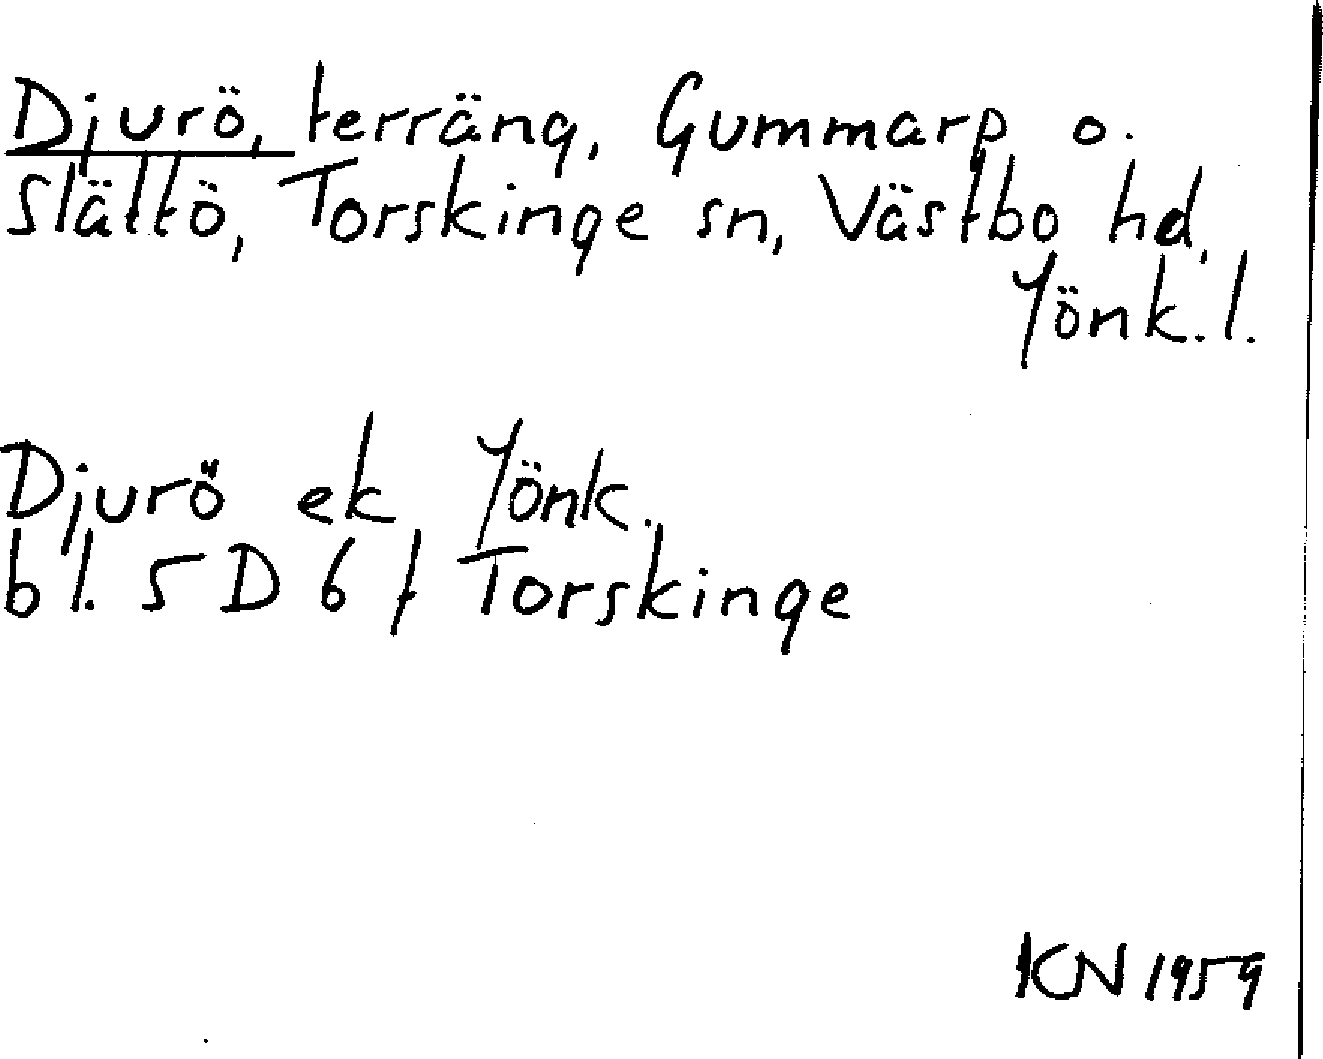 Djurö, terräng, Gummarp o.
Slättö, Torskinge sn, Västbo hd,
Jönk. l.
Djurö ek Jönk.
bl. 5 D 6 f Torskinge
KN 1959